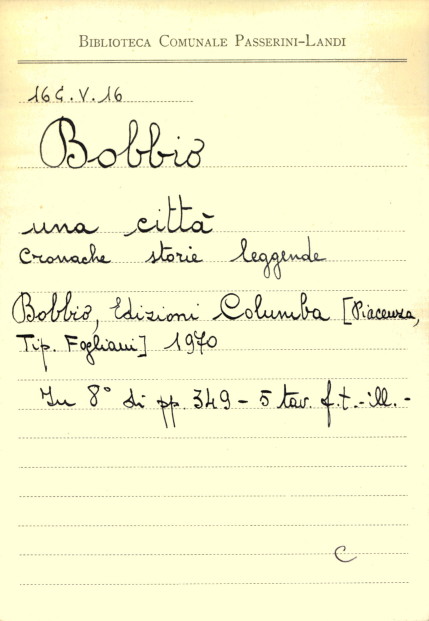 BIBLIOTECA COMUNALE PASSERINI-LANDI
16 C. V. 16
Bobbio
una città
Cronache storie leggende
Bobbio, Edizioni Columba [Piacenza,
Tip. Fogliani] 1970
In 8° di pp. 349 - 5 tav. f. t. - ill. -
C